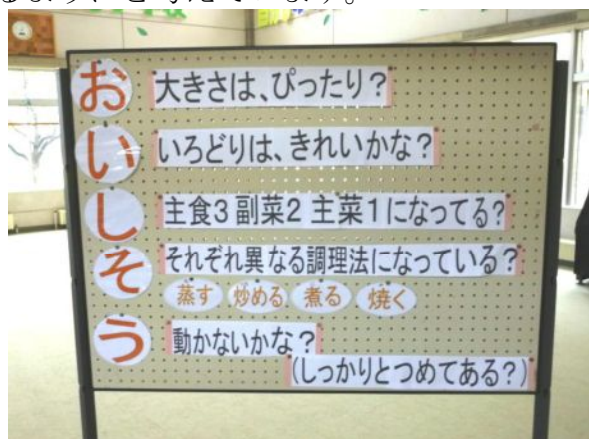 お 大きさは、ぴったり？
い いろどりは、きれいかな？
し 主食3 副菜2 主菜1になってる？
そ それぞれ異なる調理法になっている？
蒸す 炒める 煮る 焼く
う 動かないかな？
(しっかりとつめてある？)